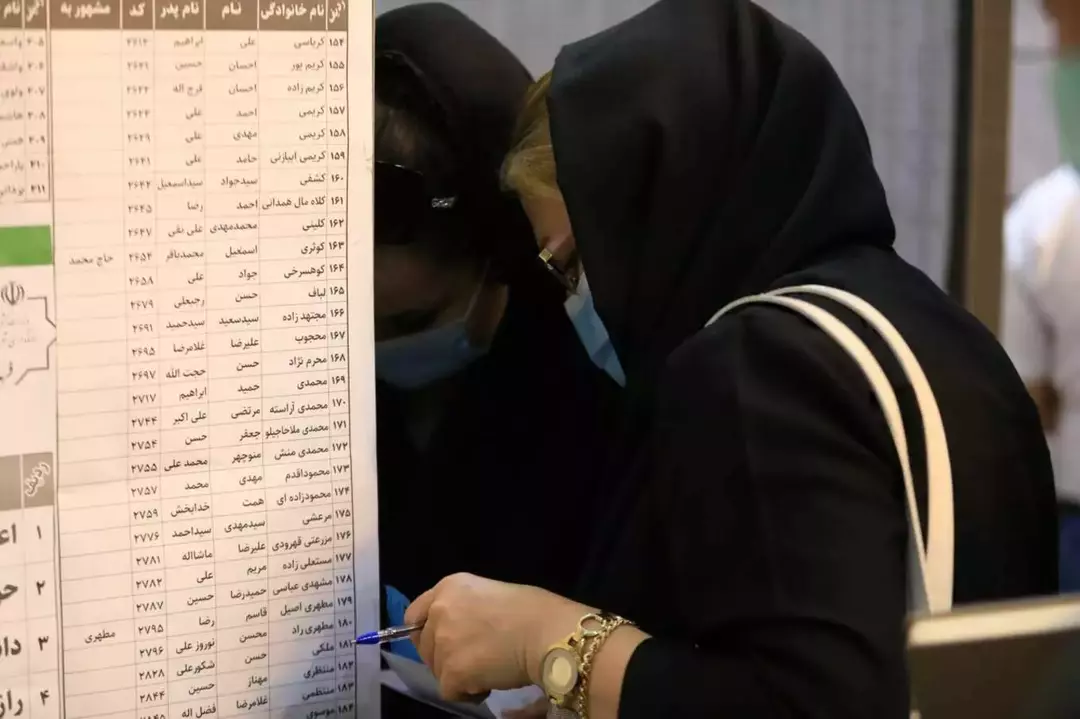 ردیف نام خانوادگی نام نام پدر کد مشهور به
۱۵۴ کرباسی علی ابراهیم ۲۶۱۴
۱۵۵ کریم پور احسان حسین ۲۶۲۱
۱۵۶ کریم زاده احسان فرج اله ۲۶۲۲
۱۵۷ کریمی احمد علی ۲۶۲۴
۱۵۸ کریمی مهدی علی ۲۶۲۹
۱۵۹ کریمی ابیازنی حامد علی ۲۶۴۱
۱۶۰ کشفی سیدجواد سیداسمعیل ۲۶۴۲
۱۶۱ کلاه مال همدانی احمد رضا ۲۶۴۵
۱۶۲ کلینی محمدمهدی علی نقی ۲۶۴۷
۱۶۳ کوثری اسمعیل محمدباقر ۲۶۵۲ حاج محمد
۱۶۴ کوهسرخی جواد علی ۲۶۵۸
۱۶۵ لباف حسن رجبعلی ۲۶۷۹
۱۶۶ مجتهد زاده سیدسعید سیدحمید ۲۶۹۱
۱۶۷ محجوب علیرضا غلامرضا ۲۶۹۵
۱۶۸ محرم نژاد حسن حجت الله ۲۶۹۷
۱۶۹ محمدی حمید ابراهیم ۲۷۱۷
۱۷۰ محمدی آراسته مرتضی علی اکبر ۲۷۴۴
۱۷۱ محمدی ملاحاجیلو جعفر حسن ۲۷۵۴
۱۷۲ محمدی منش منوچهر محمد علی ۲۷۵۵
۱۷۳ محموداقدم مهدی محمد ۲۷۵۷
۱۷۴ محمودزاده ای همت خدابخش ۲۷۵۹
۱۷۵ مرعشی سیدمهدی سیداحمد ۲۷۷۶
۱۷۶ مزرعتی قهرودی علیرضا ماشااله ۲۷۸۱
۱۷۷ مستعلی زاده مریم علی ۲۷۸۲
۱۷۸ مشهدی عباسی حمیدرضا حسین ۲۷۸۷
۱۷۹ مطهری اصیل قاسم رضا ۲۷۹۵ مطهری
۱۸۰ مطهری راد محسن نوروز علی ۲۷۹۶
۱۸۱ ملکی حسن شکورعلی ۲۸۲۸
۱۸۲ منتظری مهناز حسین ۲۸۴۴
۱۸۳ منتظمی غلامرضا فضل اله ۲۸۴۵
۱۸۴ موسوی
۲۰۷
۲۰۸
۲۰۹
۲۱۰
۲۱۱
ردیف
۱
۲
۳
۴